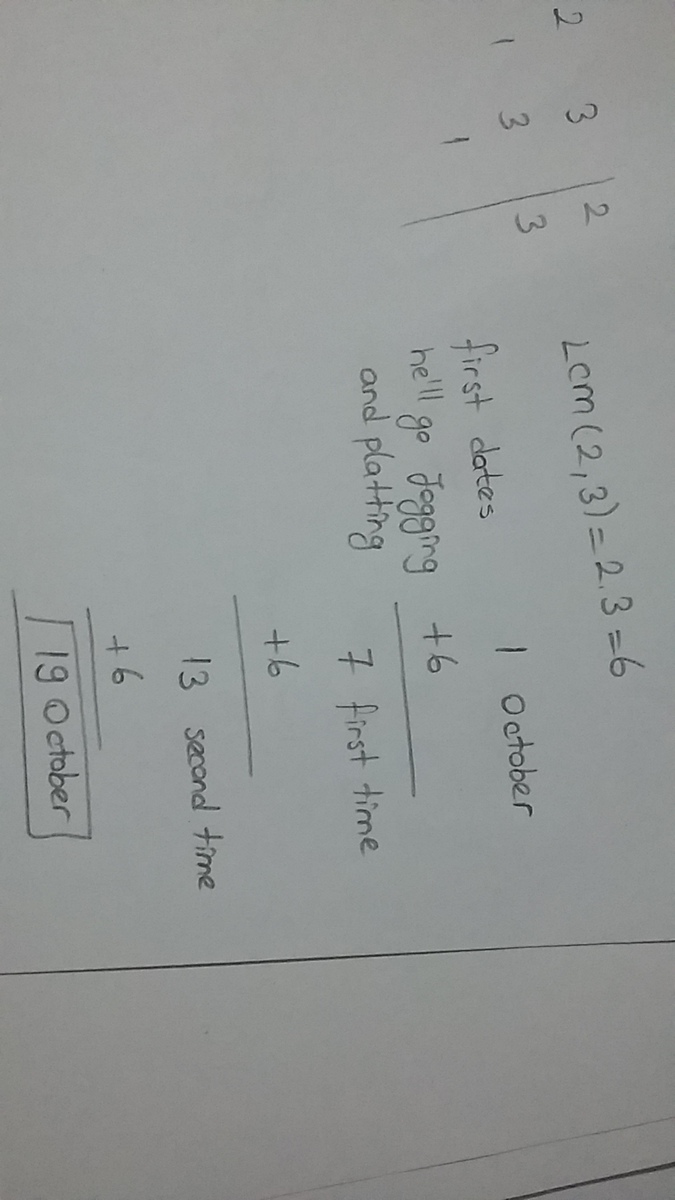 2 3 | 2
1 3 | 3
1
Lcm (2,3) = 2.3 = 6
first dates
he'll go Jogging
and platting
1 October
+6
7 first time
+6
13 second time
+6
19 October